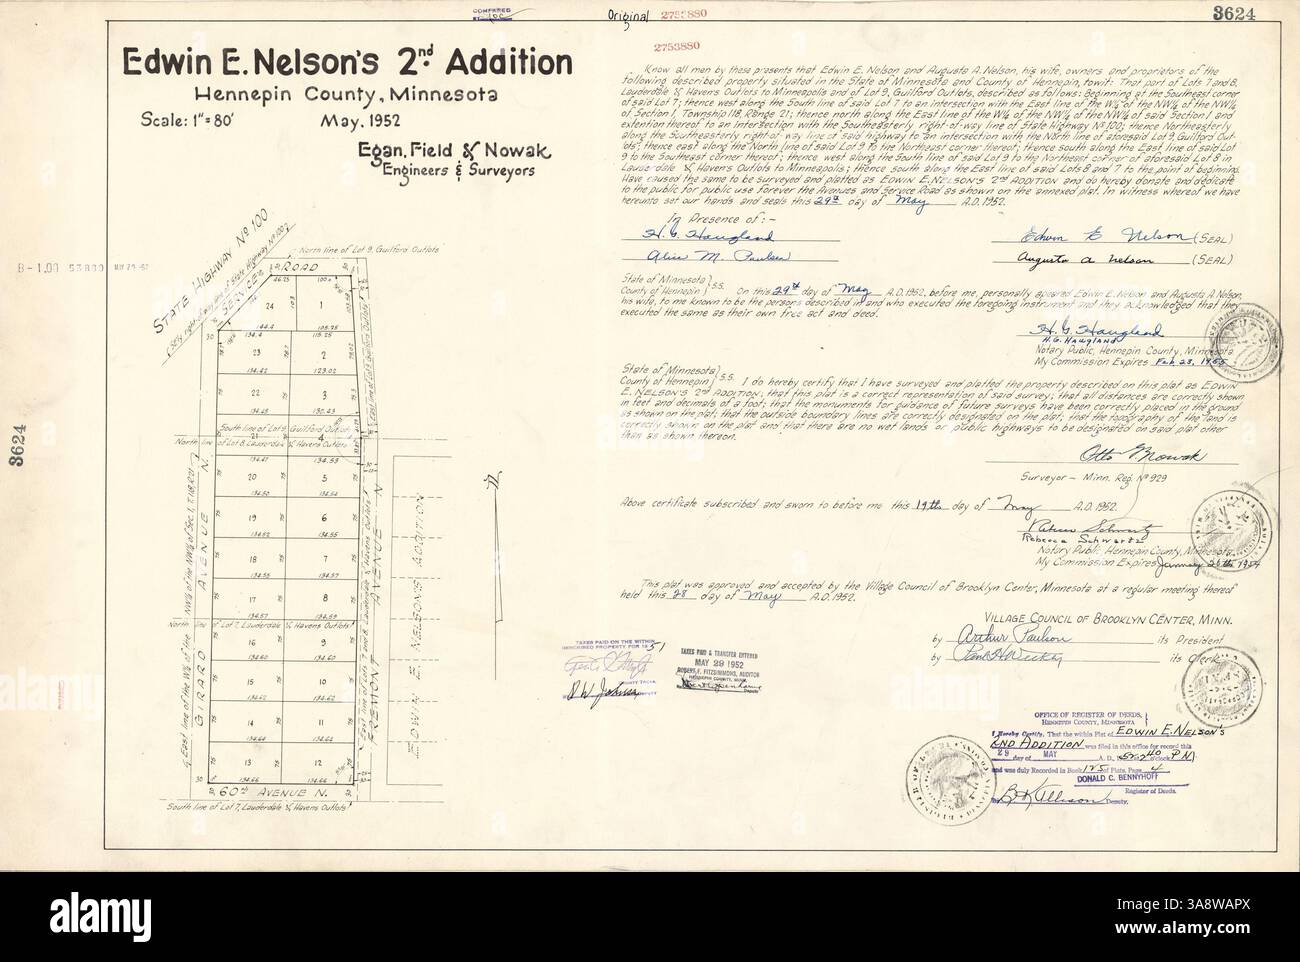 COMPARED
Original
2753880
3624
2753880
Edwin E. Nelson's 2nd. Addition
Hennepin County, Minnesota
Scale: 1"=80'
May, 1952
Egan, Field & Nowak
Engineers & Surveyors
Know all men by these presents that Edwin E. Nelson and Augusta A. Nelson, his wife, owners and proprietors of the
following described property situated in the State of Minnesota and County of Hennepin, towit: That part of Lots 7 and 8,
Lauderdale & Havens Outlots to Minneapolis and of Lot 9, Guilford Outlots, described as follows: Beginning at the Southeast corner
of said Lot 7; thence west along the South line of said Lot 7 to an intersection with the East line of the W½ of the NW¼ of the NW¼
of Section 1, Township 118, Range 21; thence north along the East line of the W½ of the NW¼ of the NW¼ of said Section 1 and
extention thereof to an intersection with the Southeasterly right-of-way line of State Highway No 100; thence Northeasterly
along the Southeasterly right-of-way line of said highway to an intersection with the North line of aforesaid Lot 9, Guilford Out-
lots; thence east along the North line of said Lot 9 to the Northeast corner thereof; thence south along the East line of said Lot
9 to the Southeast corner thereof; thence west along the South line of said Lot 9 to the Northeast corner of aforesaid Lot 8 in
Lauderdale & Havens Outlots to Minneapolis; thence south along the East line of said Lots 8 and 7 to the point of beginning.
Have caused the same to be surveyed and platted as EDWIN E. NELSON'S 2ND ADDITION and do hereby donate and dedicate
to the public for public use forever the Avenues and Service Road as shown on the annexed plat. In witness whereof we have
hereunto set our hands and seals this 29th day of May A.D. 1952.
In Presence of:-
H. G. Haugland
Edwin E Nelson (SEAL)
Alice M. Paulsen
Augusta A Nelson (SEAL)
State of Minnesota
County of Hennepin } S.S. On this 29th day of May A.D. 1952, before me, personally apeared Edwin E. Nelson and Augusta A. Nelson,
his wife, to me known to be the persons described in and who executed the foregoing instrument and they acknowledged that they
executed the same as their own free act and deed.
H. G. Haugland
H. G. HAUGLAND
Notary Public, Hennepin County, Minnesota
My Commission Expires Feb 28, 1955
State of Minnesota
County of Hennepin } S.S. I do hereby certify that I have surveyed and platted the property described on this plat as EDWIN
E. NELSON'S 2ND ADDITION; that this plat is a correct representation of said survey; that all distances are correctly shown
in feet and decimals of a foot; that the monuments for guidance of future surveys have been correctly placed in the ground
as shown on the plat; that the outside boundary lines are correctly designated on the plat; that the topography of the land is
correctly shown on the plat and that there are no wet lands or public highways to be designated on said plat other
than as shown thereon.
Otto F. Nowak
Surveyor - Minn. Reg. No 929
Above certificate subscribed and sworn to before me this 19th day of May A.D. 1952.
Rebecca Schwartz
Rebecca Schwartz
Notary Public Hennepin County, Minnesota
My Commission Expires January 26th 1954
This plat was approved and accepted by the Village Council of Brooklyn Center, Minnesota at a regular meeting thereof
held this 28 day of May A.D. 1952.
VILLAGE COUNCIL OF BROOKLYN CENTER, MINN.
by Arthur Paulson its President
by its Clerk
TAXES PAID ON THE WITHIN
DESCRIBED PROPERTY FOR 1951
TAXES PAID & TRANSFER ENTERED
MAY 29 1952
ROBERT F. FITZSIMMONS, AUDITOR
HENNEPIN COUNTY, MINN.
Deputy
OFFICE OF REGISTER OF DEEDS,
HENNEPIN COUNTY, MINNESOTA
I Hereby Certify, That the within Plat of EDWIN E. NELSON'S
2ND ADDITION was filed in this office for record this
29 day of MAY A. D., o'clock P M
and was duly Recorded in Book 125 of Plats, Page 4
DONALD C. BENNYHOFF
Register of Deeds.
Deputy.
STATE HIGHWAY No 100
(S'ely right-of-way line of State Highway No 100)
SERVICE ROAD
North line of Lot 9, Guilford Outlots
B-1.00 53880 MAY 29-52
24 1
23 2
22 3
South line of Lot 9, Guilford Outlots
21 4
North line of Lot 8, Lauderdale & Havens Outlots
20 5
19 6
18 7
17 8
North line of Lot 7, Lauderdale & Havens Outlots
16 9
15 10
14 11
13 12
60th AVENUE N.
South line of Lot 7, Lauderdale & Havens Outlots
East line of the W½ of the NW¼ of the NW¼ of Sec. 1, T.118, R.21
GIRARD AVENUE N.
East line of Lot 9, Guilford Outlots
East line of Lots 7 and 8, Lauderdale & Havens Outlots
FREMONT AVENUE N
EDWIN E NELSONS ADDITION
N
3624
alamy
Image ID: 3A8WAPX
www.alamy.com